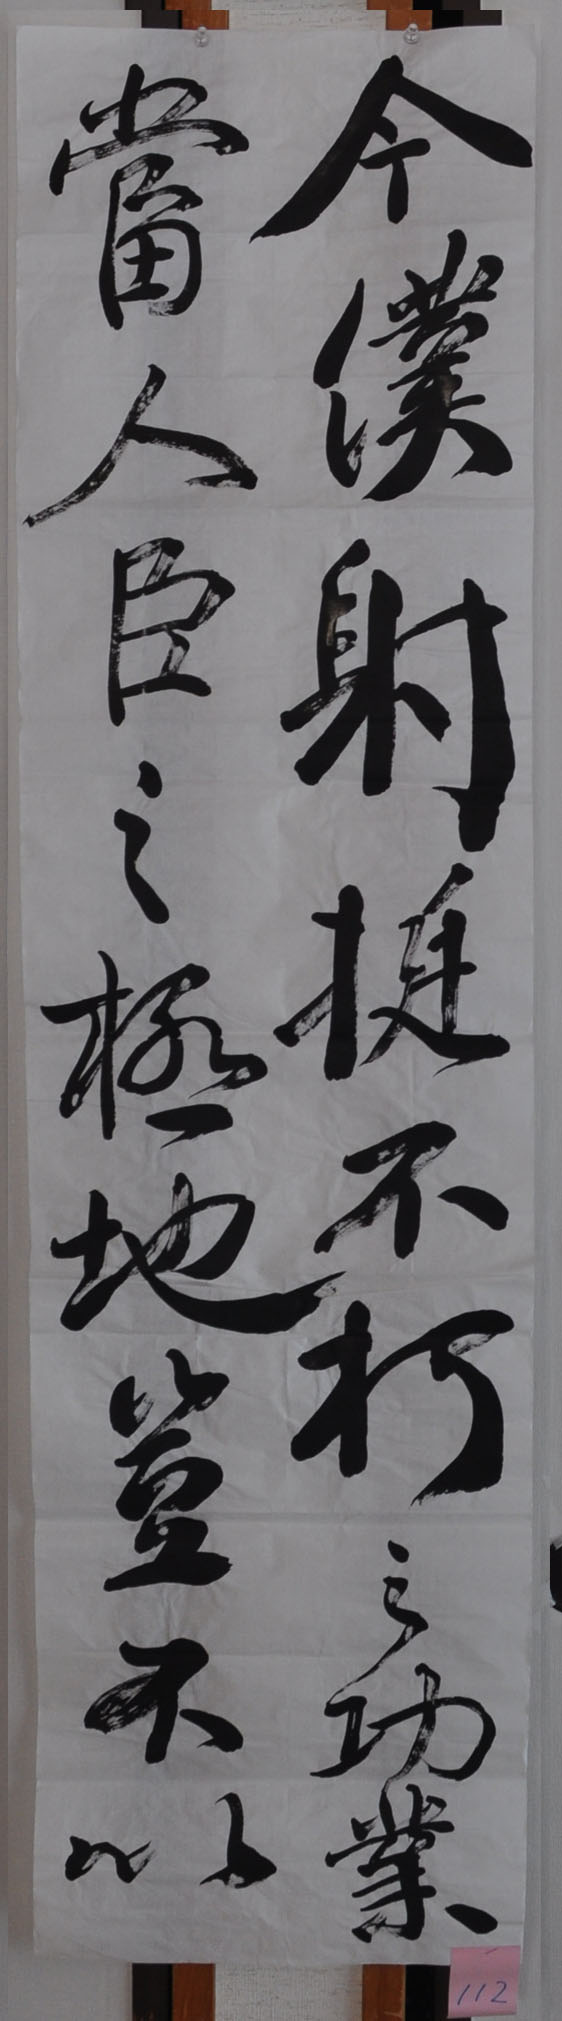 今僕射挺不朽之功業
當人臣之極地豈不以
112